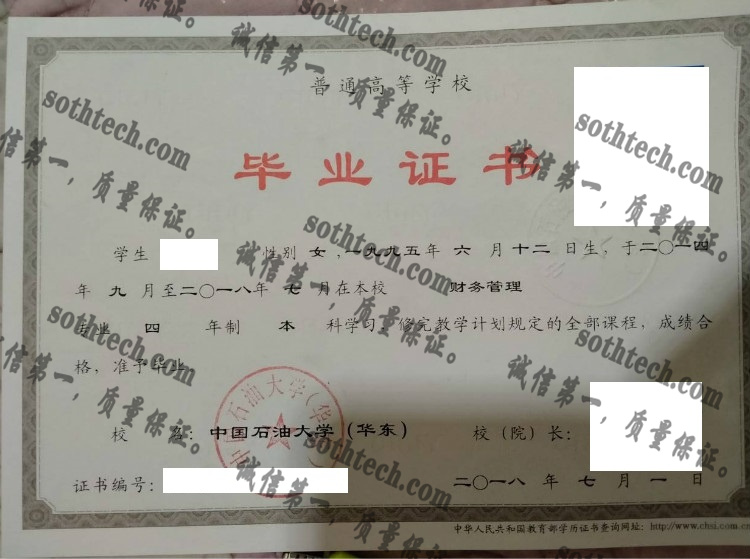 普通高等学校
毕业证书
学生 性别 女，一九九五年 六 月十二 日生，于二〇一四
年 九 月至二〇一八年 七 月在本校 财务管理
专业 四 年制 本 科学习，修完教学计划规定的全部课程，成绩合
格，准予毕业。
校 名：中国石油大学（华东） 校（院）长：
证书编号： 二〇一八 年 七 月 一 日
中华人民共和国教育部学历证书查询网址：http://www.chsi.com.cn
中国石油大学（华东）
sothtech.com
诚信第一，质量保证。
sothtech.com
诚信第一，质量保证。
sothtech.com
诚信第一，质量保证。
sothtech.com
诚信第一，质量保证。
sothtech.com
诚信第一，质量保证。
sothtech.com
诚信第一，质量保证。
sothtech.com
诚信第一，质量保证。
sothtech.com
诚信第一，质量保证。